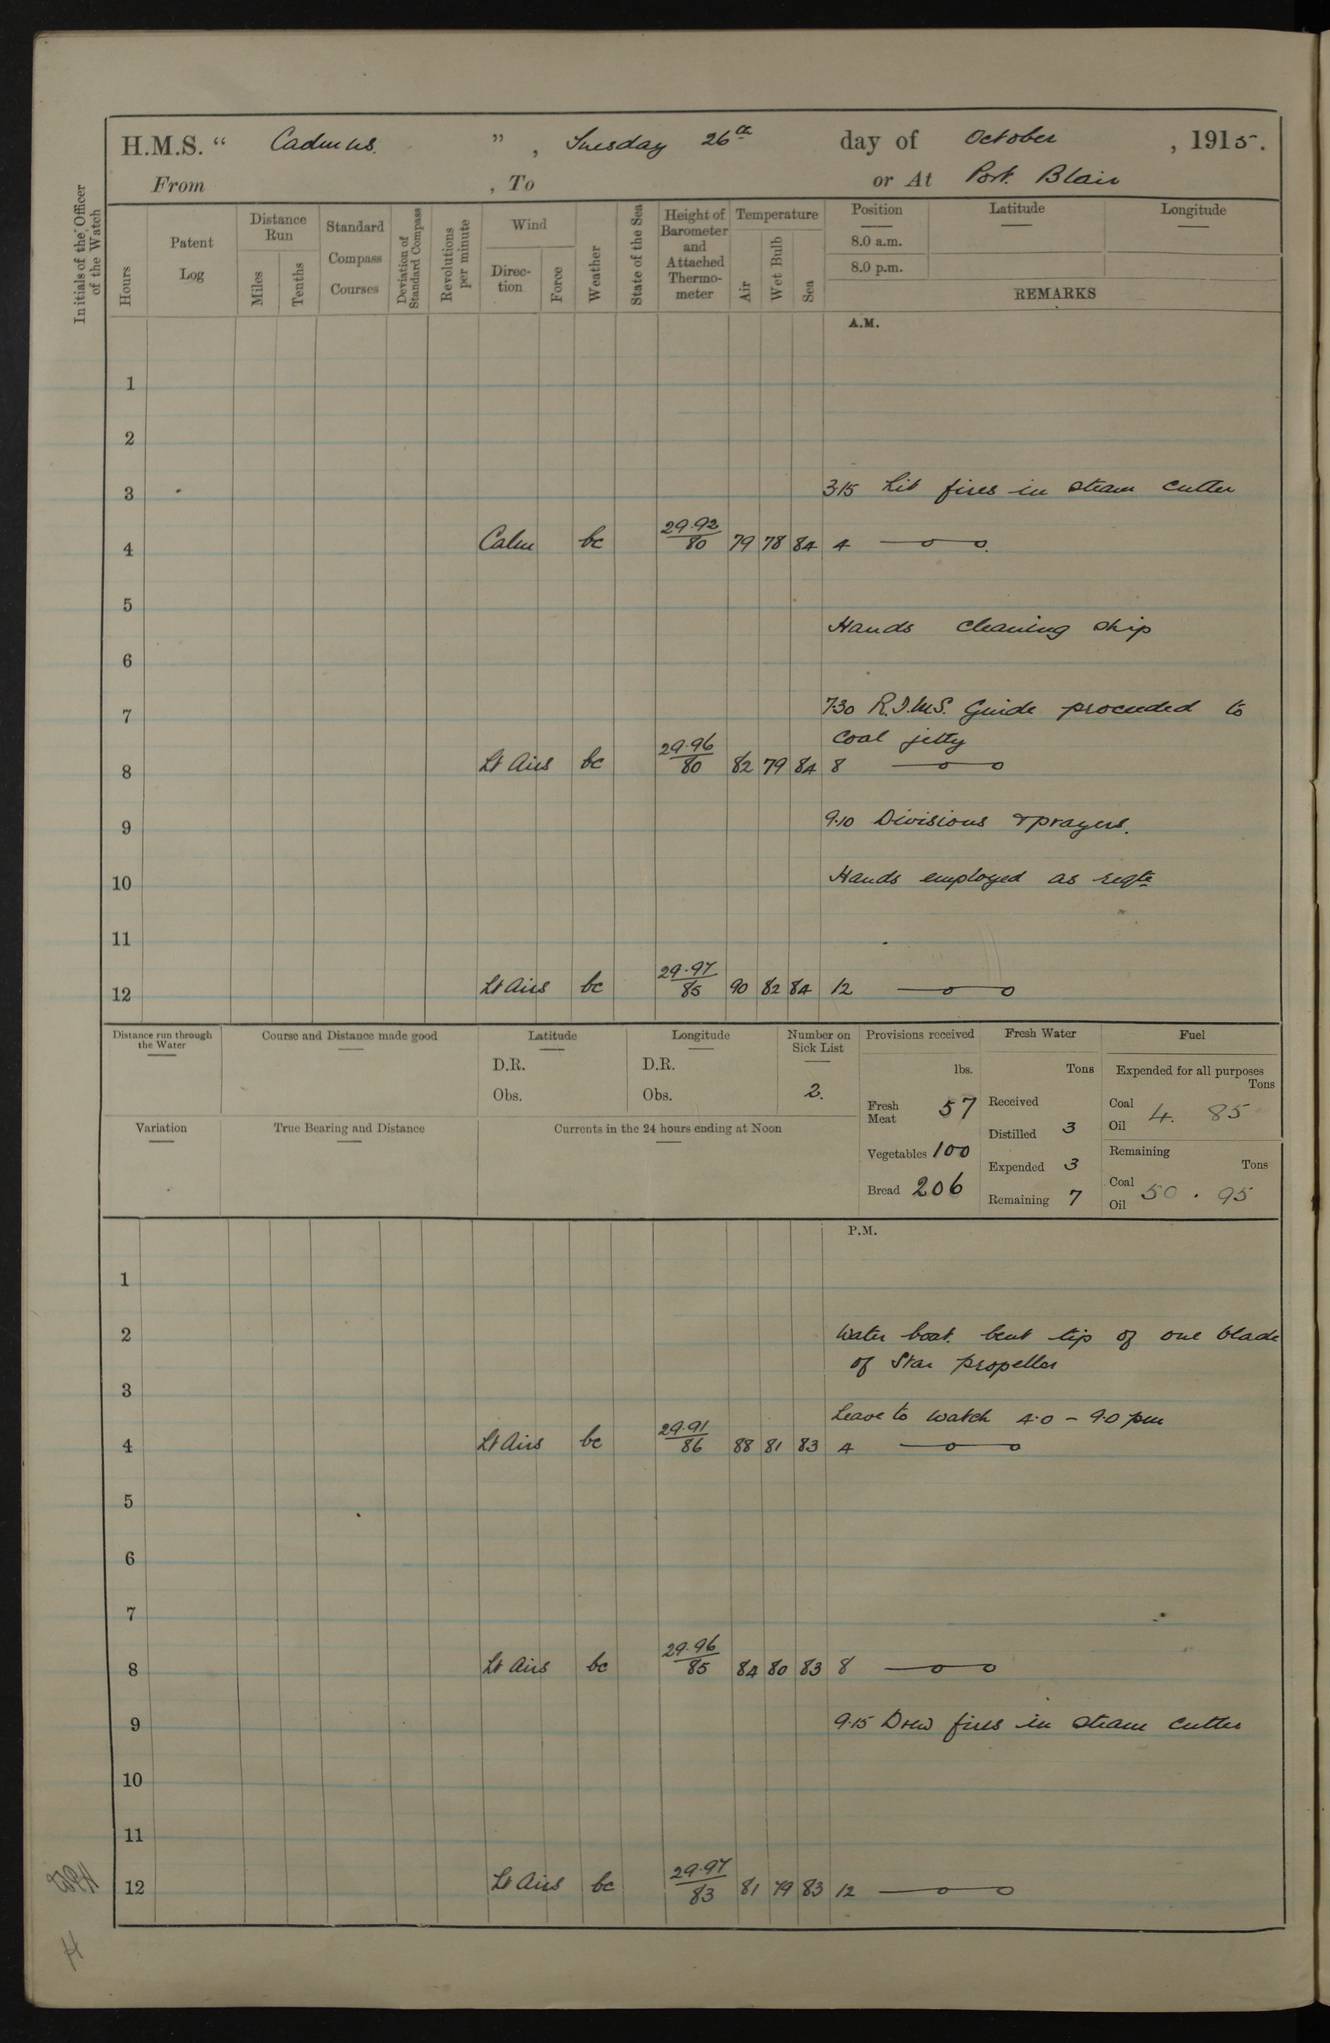 H.M.S. “ Cadmus. ” , Tuesday 26th day of October , 1915.
From , To or At Port Blair
Initials of the Officer of the Watch
Hours
Patent Log
Distance Run
Miles
Tenths
Standard Compass Courses
Deviation of Standard Compass
Revolutions per minute
Wind
Direc-tion
Force
Weather
State of the Sea
Height of Barometer and Attached Thermo-meter
Temperature
Air
Wet Bulb
Sea
Position Latitude Longitude
8.0 a.m.
8.0 p.m.
REMARKS
A.M.
1
2
3 3.15 Lit fires in steam cutter
4 Calm bc 29.92/80 79 78 84 4
5
Hands cleaning ship
6
7 7.30 R.I.M.S. Guide proceeded to
coal jetty
8 Lt Airs bc 29.96/80 82 79 84 8
9 9.10 Divisions & prayers.
10 Hands employed as reqte
11
12 Lt Airs bc 29.97/85 90 82 84 12
Distance run through the Water
Course and Distance made good
Latitude
D.R.
Obs.
Longitude
D.R.
Obs.
Number on Sick List
2.
Provisions received
lbs.
Fresh Meat 57
Vegetables 100
Bread 206
Fresh Water
Tons
Received
Distilled 3
Expended 3
Remaining 7
Fuel
Expended for all purposes
Tons
Coal
Oil 4. 85
Remaining
Tons
Coal
Oil 50 . 95
Variation
True Bearing and Distance
Currents in the 24 hours ending at Noon
P.M.
1
2 Water boat bent tip of one blade
of Star propellor
3
Leave to watch 4.0 - 9.0 pm
4 Lt Airs bc 29.91/86 88 81 83 4
5
6
7
8 Lt Airs bc 29.96/85 84 80 83 8
9 9.15 Drew fires in steam cutter
10
11
12 Lt Airs bc 29.97/83 81 79 83 12